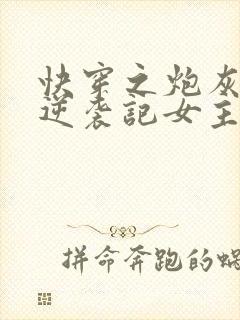 快穿之炮灰
逆袭記女主
拼命奔跑的蜗